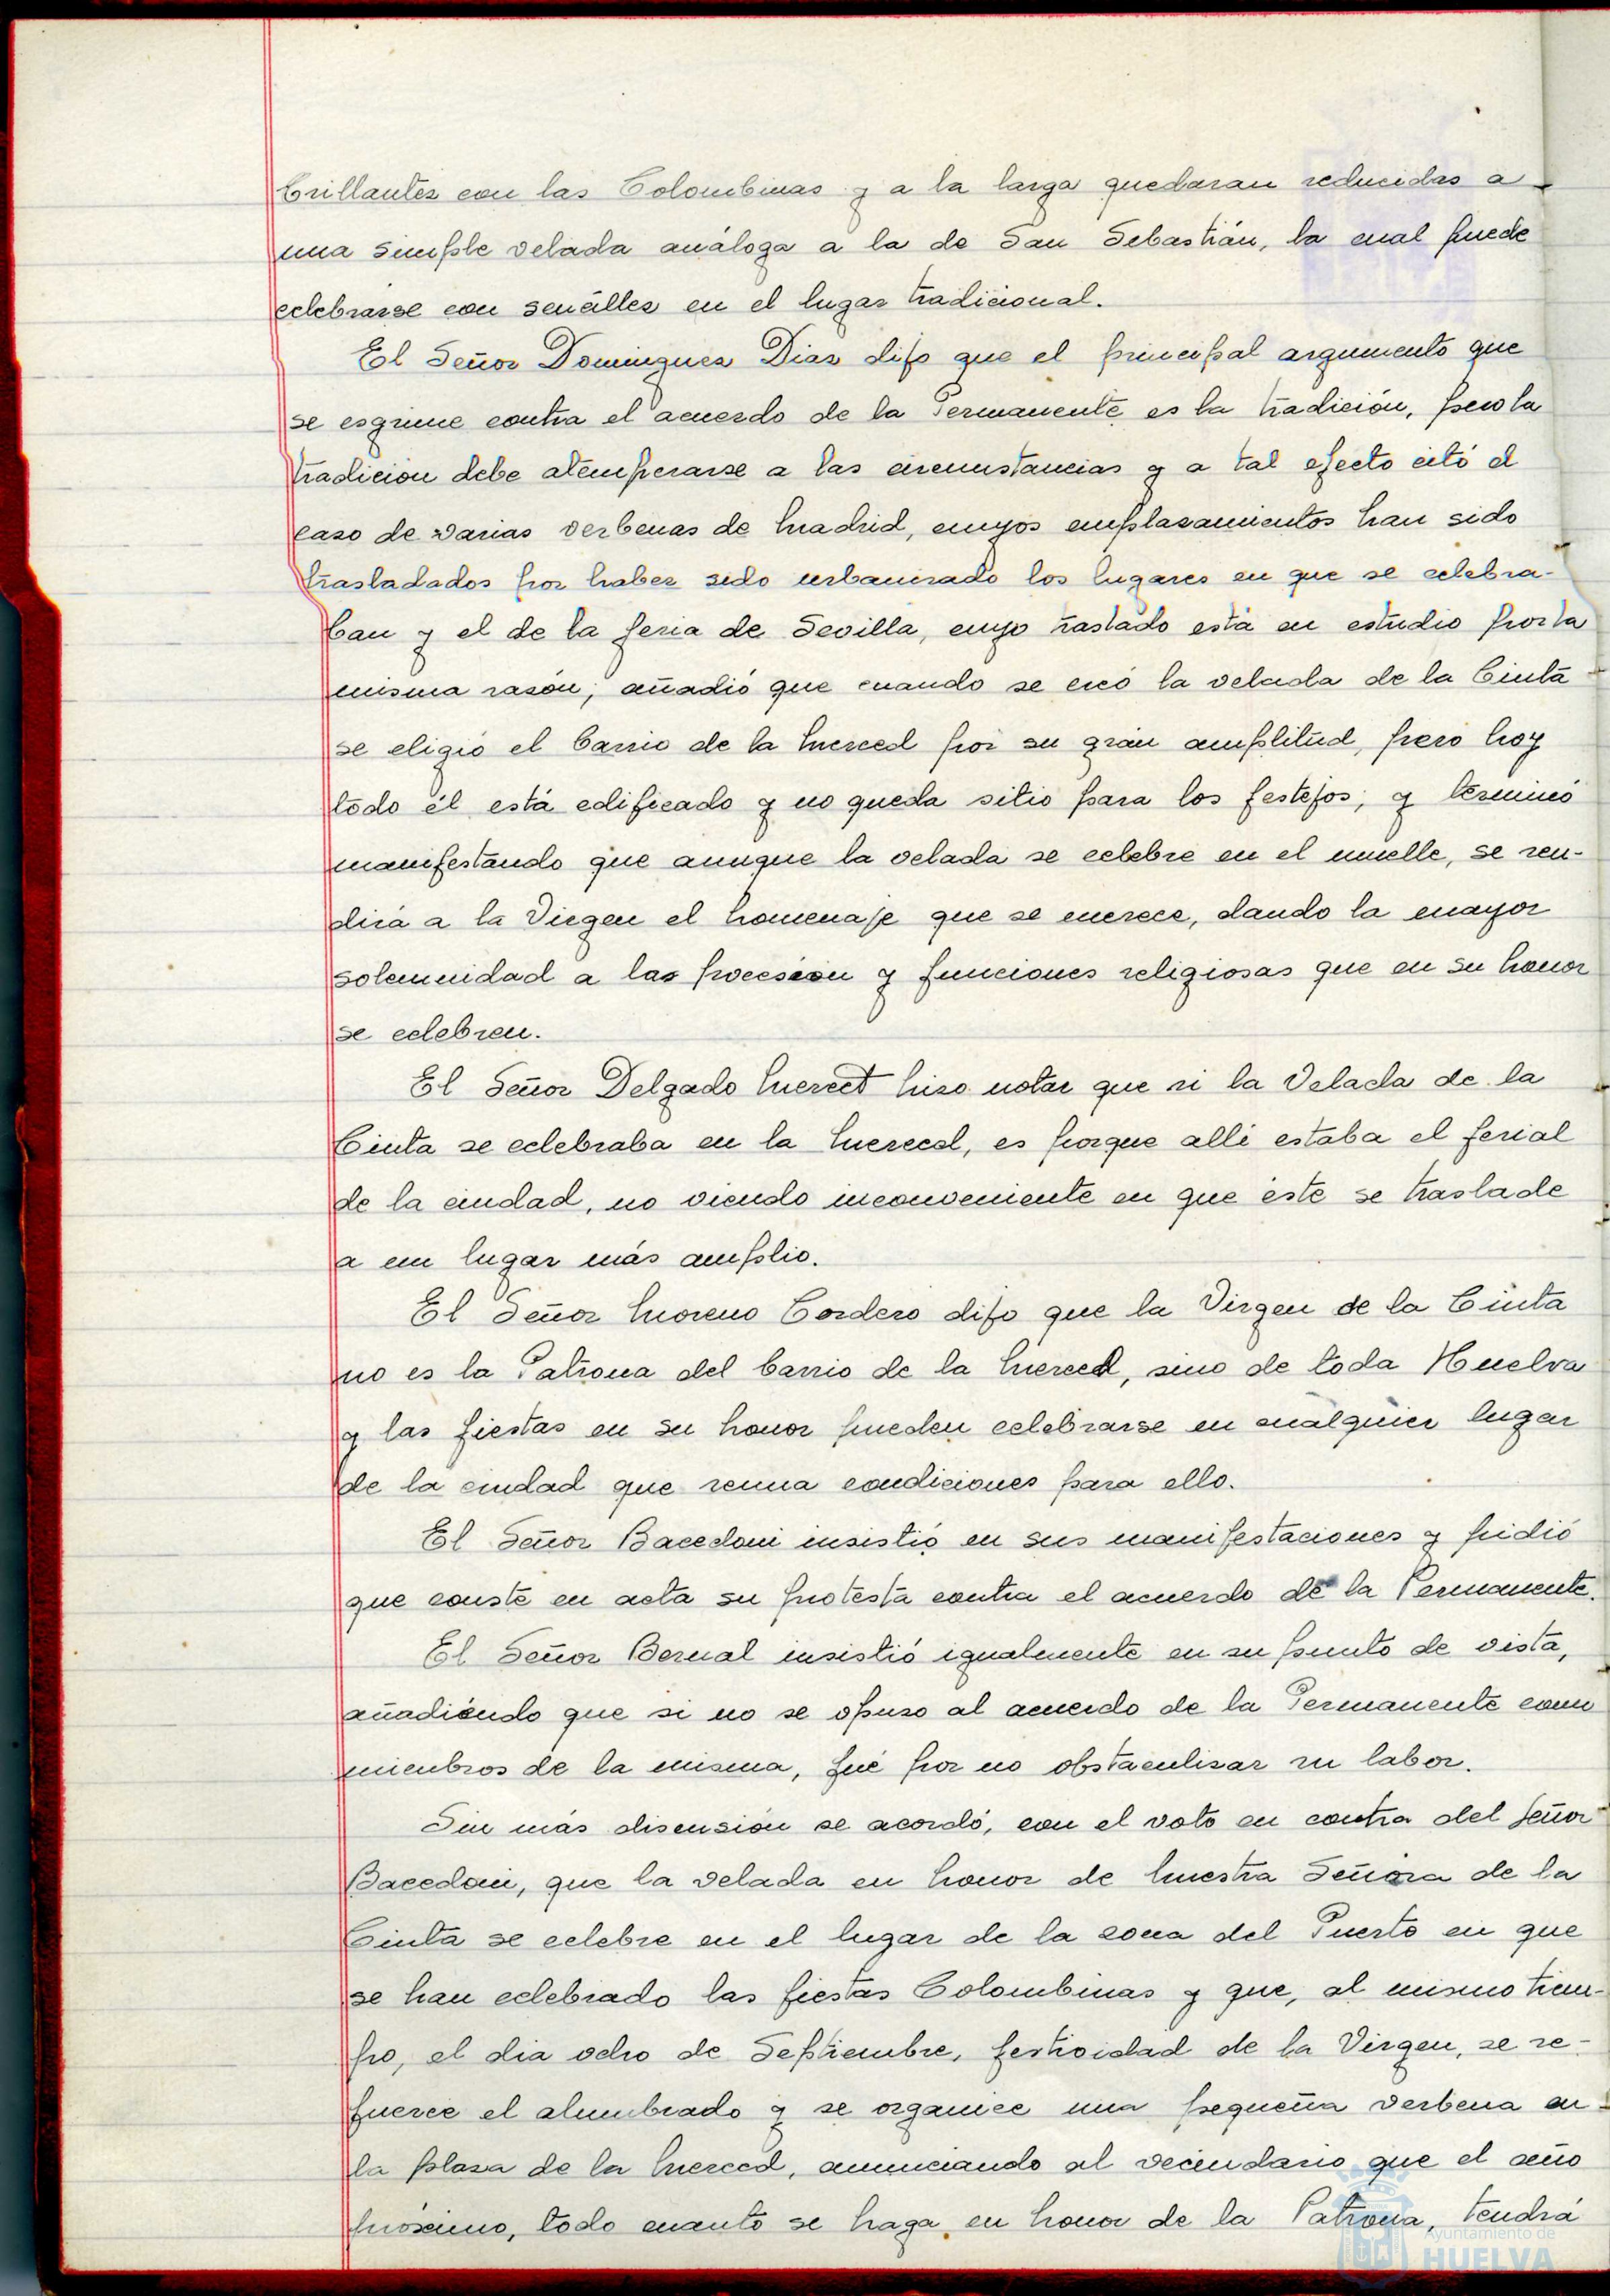 brillantez con las Colombinas y a la larga quedaran reducidas a
una simple velada análoga a la de San Sebastián, la cual puede
celebrarse con sencillez en el lugar tradicional.
El Señor Dominguez Diaz dijo que el principal argumento que
se esgrime contra el acuerdo de la Permanente es la tradición, pero la
tradición debe atemperarse a las circunstancias y a tal efecto citó el
caso de varias verbenas de Madrid, cuyos emplazamientos han sido
trasladados por haber sido urbanizado los lugares en que se celebra-
ban y el de la feria de Sevilla, cuyo traslado está en estudio por la
misma razón; añadió que cuando se creó la velada de la Cinta
se eligió el barrio de la Merced por su gran amplitud, pero hoy
todo él está edificado y no queda sitio para los festejos; y terminó
manifestando que aunque la velada se celebre en el muelle, se ren-
dirá a la Virgen el homenaje que se merece, dando la mayor
solemnidad a las procesión y funciones religiosas que en su honor
se celebren.
El Señor Delgado Merect hizo notar que si la Velada de la
Cinta se celebraba en la Merced, es porque alli estaba el ferial
de la ciudad, no viendo inconveniente en que éste se traslade
a un lugar más amplio.
El Señor Moreno Cordero dijo que la Virgen de la Cinta
no es la Patrona del barrio de la Merced, sino de toda Huelva
y las fiestas en su honor pueden celebrarse en cualquier lugar
de la ciudad que reuna condiciones para ello.
El Señor Bacedoni insistió en sus manifestaciones y pidió
que conste en acta su protesta contra el acuerdo de la Permanente.
El Señor Bernal insistió igualmente en su punto de vista,
añadiendo que si no se opuso al acuerdo de la Permanente como
miembros de la misma, fué por no obstaculizar su labor.
Sin más discusión se acordó, con el voto en contra del Señor
Bacedoni, que la velada en honor de Nuestra Señora de la
Cinta se celebre en el lugar de la zona del Puerto en que
se han celebrado las fiestas Colombinas y que, al mismo tiem-
po, el dia ocho de Septiembre, festividad de la Virgen, se re-
fuerce el alumbrado y se organice una pequeña verbena en
la plaza de la Merced, anunciando al vecindario que el año
próximo, todo cuanto se haga en honor de la Patrona, tendrá
Ayuntamiento de
HUELVA